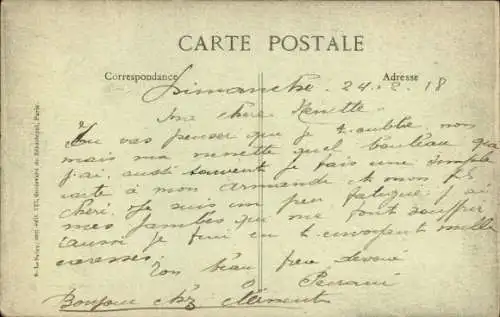 CARTE POSTALE
Correspondance
Adresse
Dimanche. 24.2.18
Ma chere Nenette
Tu vas penser que je t'oublie non
mais ma nenette quel bouleau que
j'ai. aussi souvent je fais une simple
carte à mon Armande et mon fils
cheri. Je suis un peu fatigué j'ai
mes jambes qui me font souffrir
aussi je finis en t'envoyant mille
caresses.
Ton beau frère dévoué
Bonjour chez Clément